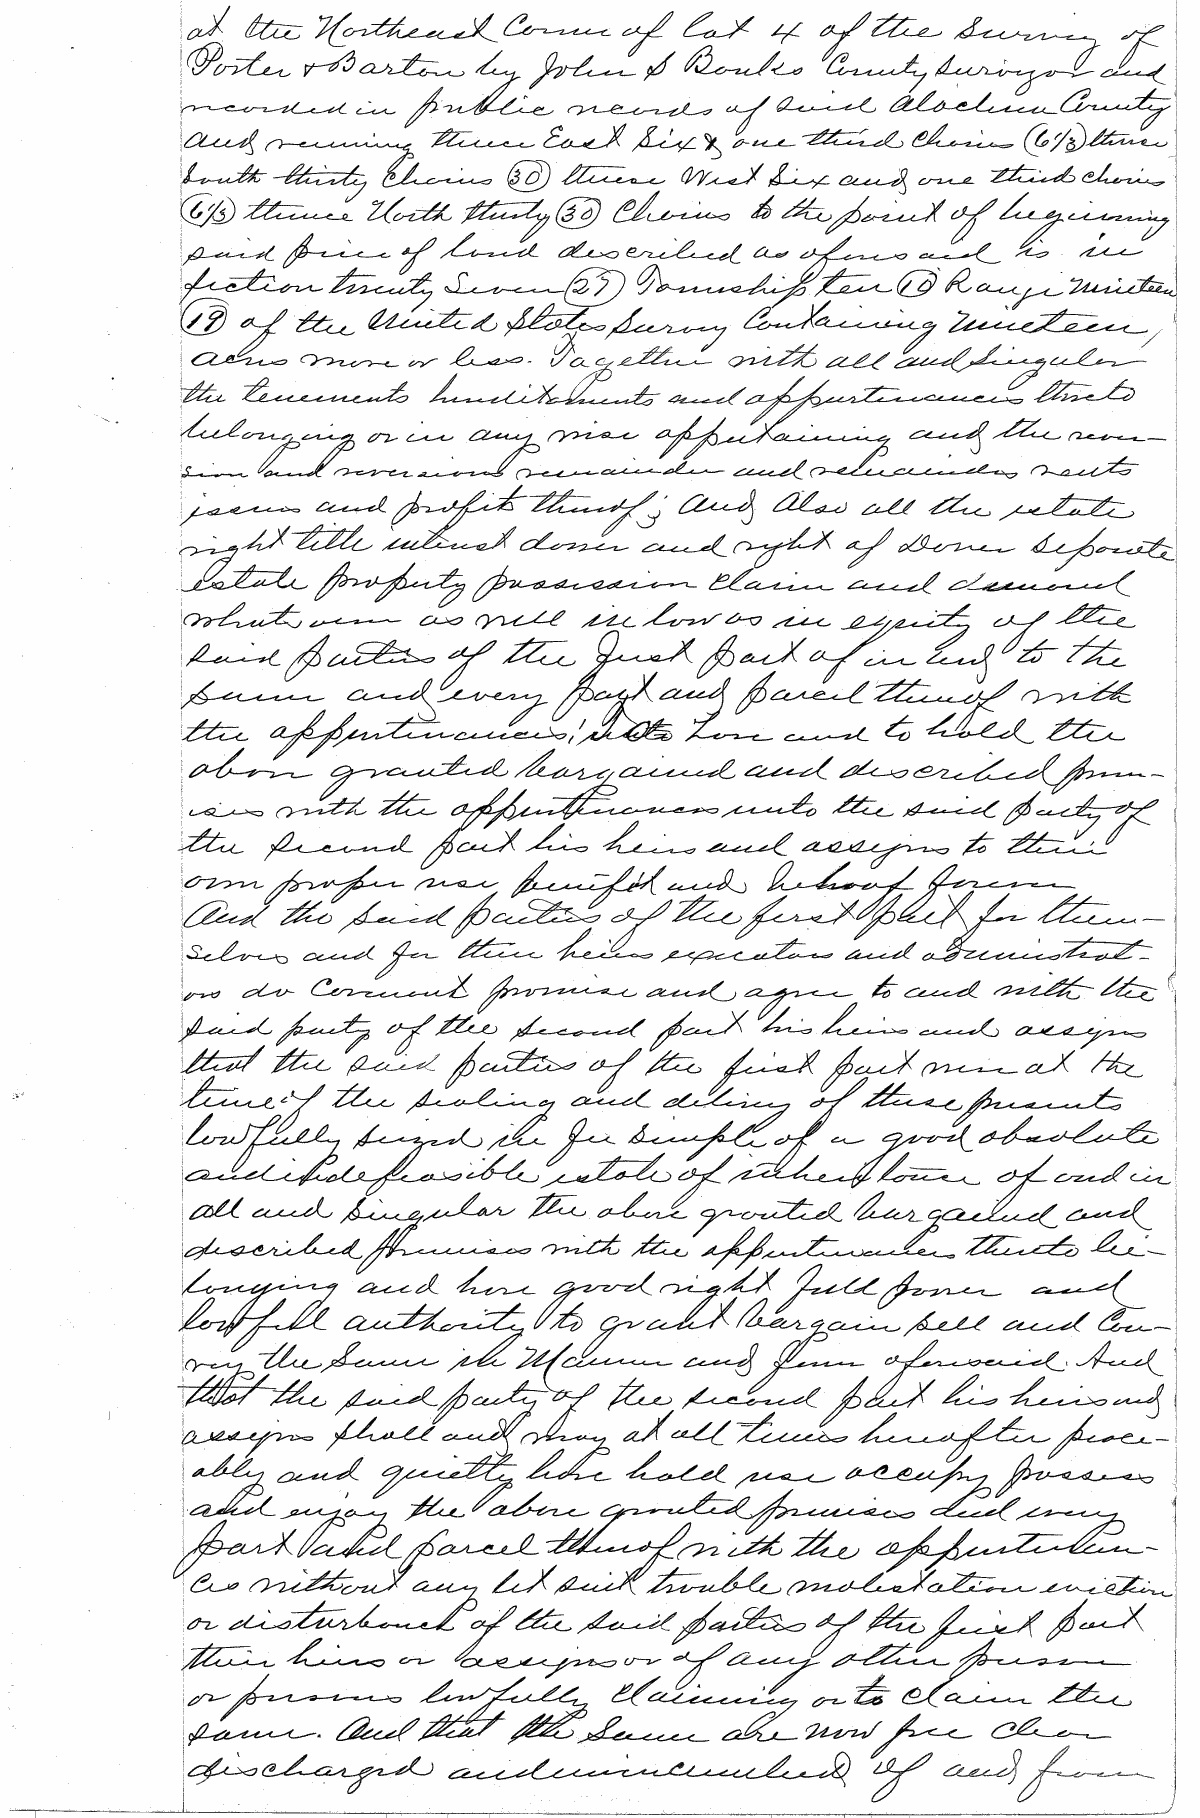 at the Northeast Corner of Lot 4 of the Survey of
Porter & Barton by John S Banks County Surveyor and
recorded in public records of said Alachua County
and running thence East Six & one third Chains (6⅓) thence
South thirty Chains (30) thence West Six and one third chains
(6⅓) thence North thirty (30) Chains to the point of beginning
said piece of land described as aforesaid is in
Section twenty Seven (27) Township ten (10) Range Nineteen
(19) of the United States Survey Containing Nineteen
acres more or less. Together with all and Singular
the tenements hereditaments and appurtenances thereto
belonging or in any wise appertaining and the rever-
sion and reversions remainder and remainders rents
issues and profits thereof; And Also all the estate
right title interest dower and right of Dower Separate
estate property possession Claim and demand
whatsoever as well in law as in equity of the
said parties of the first part of in and to the
same and every part and parcel thereof with
the appurtenances; To have and to hold the
above granted bargained and described prem-
ises with the appurtenances unto the said party of
the second part his heirs and assigns to their
own proper use benefit and behoof forever
And the said parties of the first part for them-
selves and for their heirs executors and administrat-
ors do Covenant promise and agree to and with the
said party of the second part his heirs and assigns
that the said parties of the first part were at the
time of the sealing and delivery of these presents
lawfully seized in fee simple of a good absolute
and indefeasible estate of inheritance of and in
all and Singular the above granted bargained and
described premises with the appurtenances thereto be-
longing and have good right full power and
lawfull authority to grant bargain sell and Con-
vey the Same in Manner and form aforesaid. And
that the said party of the second part his heirs and
assigns shall and may at all times hereafter peace-
ably and quietly have hold use occupy possess
and enjoy the above granted premises and every
part and parcel thereof with the appurtenan-
ces without any let suit trouble molestation eviction
or disturbance of the said parties of the first part
their heirs or assigns or of any other person
or persons lawfully Claiming or to claim the
same. And that the Same are now free clear
discharged and unincumbered of and from